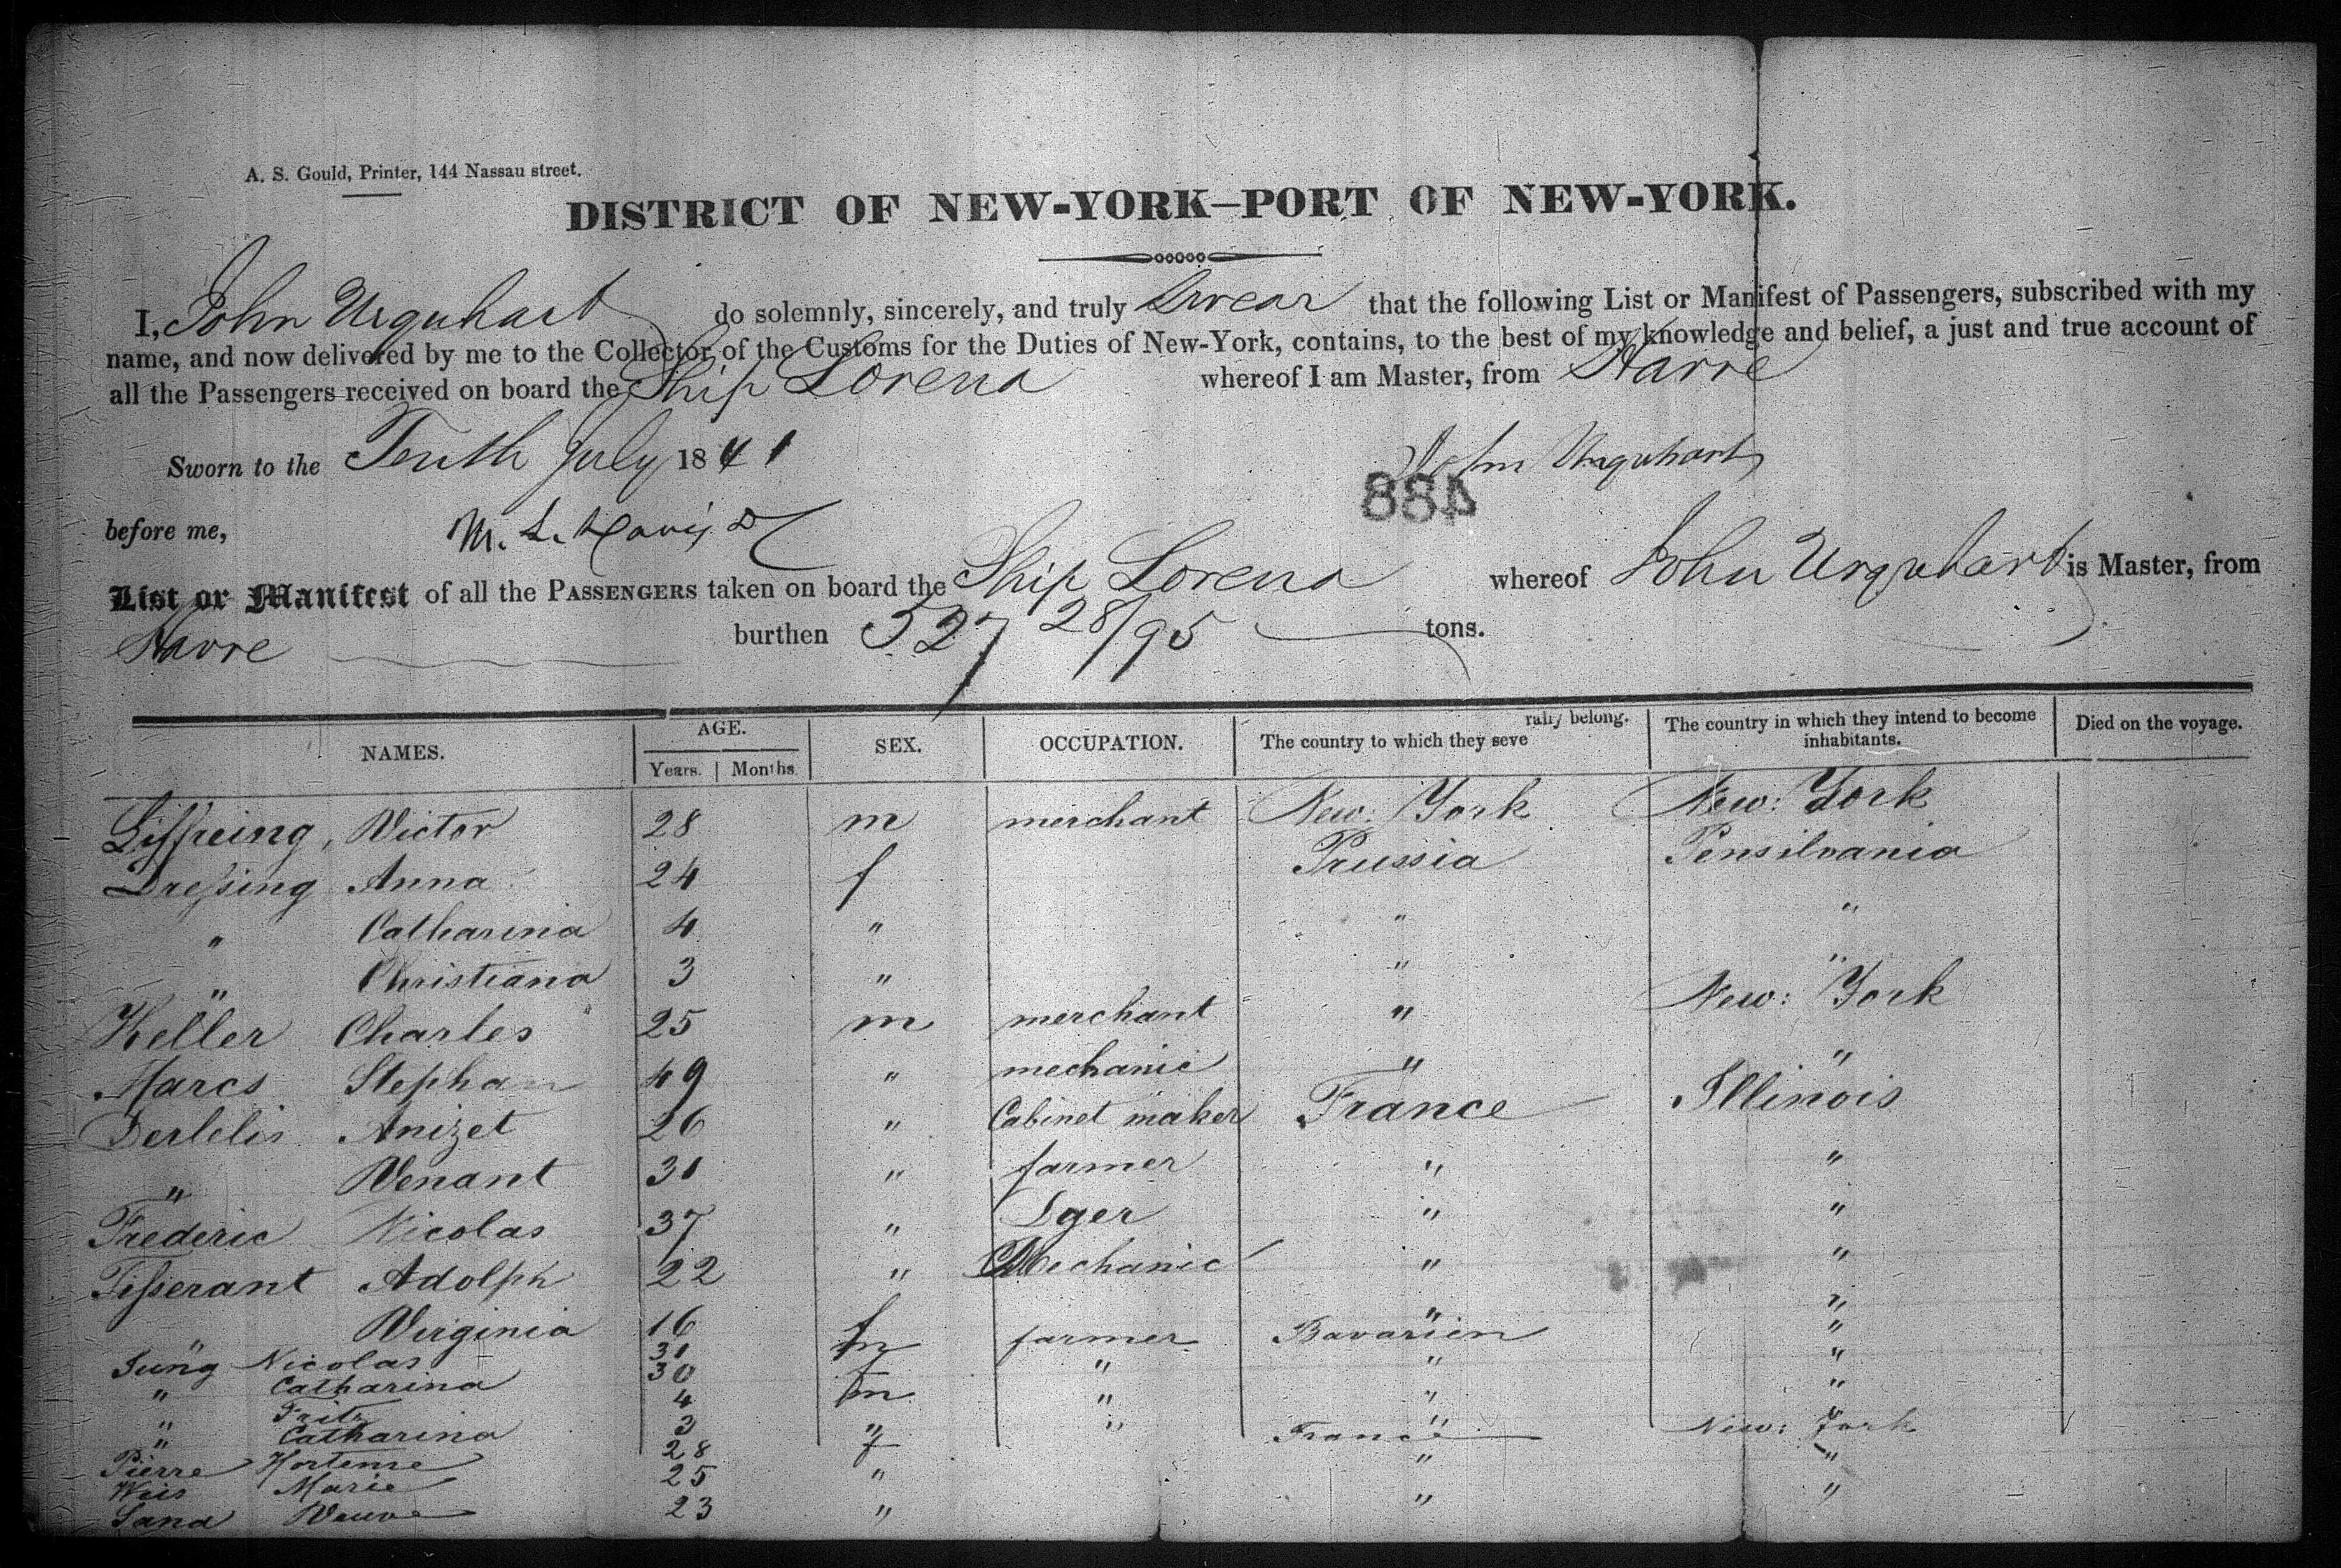 A. S. Gould, Printer, 144 Nassau street.
DISTRICT OF NEW-YORK—PORT OF NEW-YORK.
I, John Urquhart do solemnly, sincerely, and truly Swear that the following List or Manifest of Passengers, subscribed with my
name, and now delivered by me to the Collector of the Customs for the Duties of New-York, contains, to the best of my knowledge and belief, a just and true account of
all the Passengers received on board the Ship Lorena whereof I am Master, from Havre
Sworn to the Tenth July 1841 John Urquhart
884
before me, M. L. Davis
List or Manifest of all the PASSENGERS taken on board the Ship Lorena whereof John Urquhart is Master, from
Havre burthen 527 28/95 tons.
NAMES. AGE. Years. Months. SEX. OCCUPATION. The country to which they severally belong. The country in which they intend to become inhabitants. Died on the voyage.
Victor 28 m merchant New: York New: York
Dressing Anna 24 f Prussia Pensilvania
" Catharina 4 " " "
" Christiana 3 " " "
Keller Charles 25 m merchant " New: York
Marcs Stephan 49 " mechanic " "
Anizet 26 " Cabinet maker France Illinois
" Venant 31 " farmer " "
Frederic Nicolas 37 " " "
Tisserant Adolph 22 " Mechanic " "
" Virginia 16 f " "
Jung Nicolas 31 m farmer Bavarien "
" Catharina 30 f " " "
" Fritz 4 m " " "
" Catharina 3 " " " "
Pierre Hortense 28 f France New: York
Weis Marie 25 " " "
Sand Veuve 23 " " "